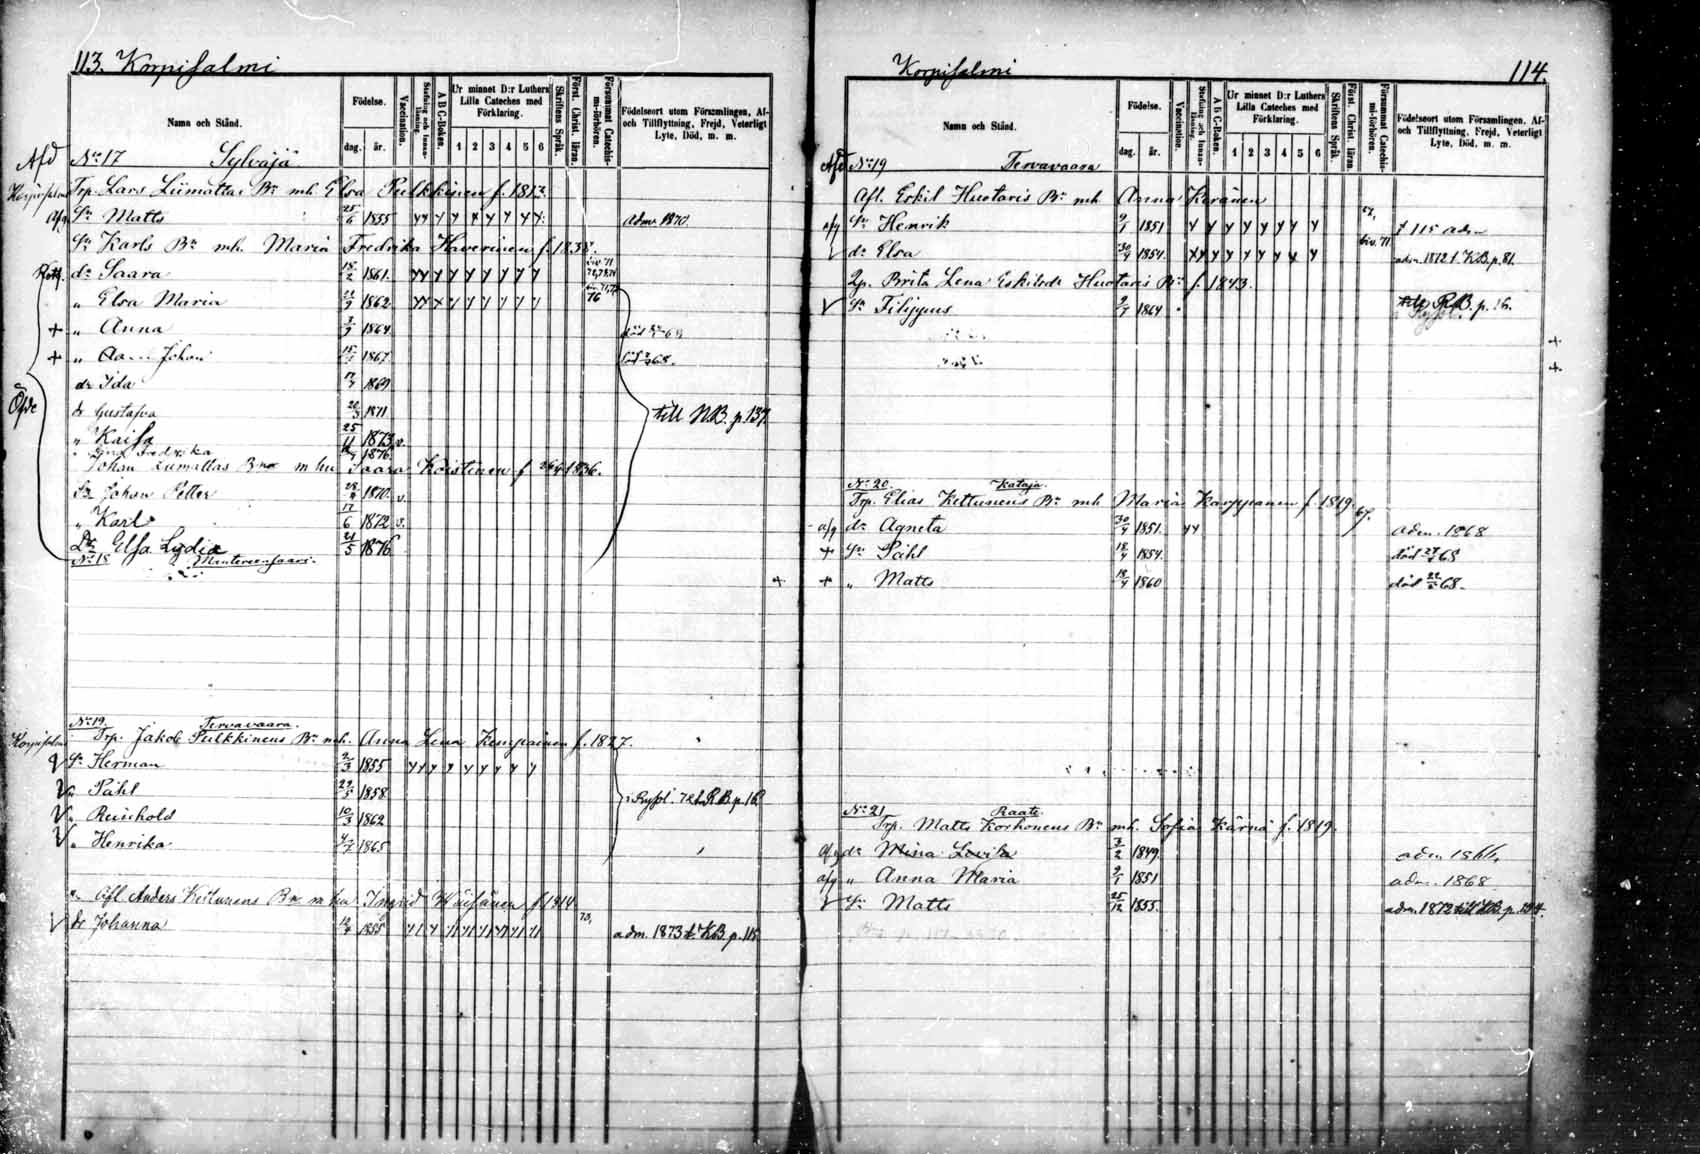 113. Korpisalmi
Namn och Stånd.
Födelse.
dag. år.
Vaccination.
Stafning och Innanläsning.
A B C-Boken.
Ur minnet D:r Luthers Lilla Cateches med Förklaring.
1 2 3 4 5 6
Skriftens Språk.
Förat. Christ. läran.
Försummat Catechismi-förhören.
Födelseort utom Församlingen, Af- och Tillflyttning, Frejd, Veterligt Lyte, Död, m. m.
Afd No 17 Sylväjä
Korpisalmi Trp. Lars Liimattas Bn mh Elsa Pulkkinen f. 1813
afg Sn Matts 25/6 1855 adm. 1870.
Sn Karls Bn mh. Maria Fredrika Haverinen f. 1838
dr Saara 18/2 1861.
" Elsa Maria 1862 76
+ " Anna 1864
+ " Johan 1867 68.
dr Ida 1869
Öfde dr Gustafva 20/3 1871 till NB. p. 137.
" Kaisa 25/11 1873 v.
1876
Johan Liimattas Bn m hu Saara Koistinen f 1836.
Sn Johan Petter 1870 v.
" Karl 17/6 1872 v.
Dr Elsa Lydia 21/5 1876
No 18 Mantereensaari.
No 19. Tervavaara.
Korpisalmi Trp. Jakob Pulkkinens Bn mh. Anna Lena Kemppainen f. 1827.
Sn Herman 2/3 1855
" Påhl 1858 RB. p. 16
" Reinhold 10/3 1862
" Henrika 1865
Afl. Anders Kettunens Bn m hu Ingrid Wäisänen f 1814
dr Johanna 1855 73, adm. 1873 t. KB. p. 115
Korpisalmi 114.
Namn och Stånd.
Födelse.
dag. år.
Vaccination.
Stafning och Innanläsning.
A B C-Boken.
Ur minnet D:r Luthers Lilla Cateches med Förklaring.
1 2 3 4 5 6
Skriftens Språk.
Förat. Christ. läran.
Försummat Catechismi-förhören.
Födelseort utom Församlingen, Af- och Tillflyttning, Frejd, Veterligt Lyte, Död, m. m.
Afd No 19 Tervavaara
Afl. Eskil Huotaris Bn mh Anna Keränen
afg Sn Henrik 1851 115 adm
dr Elsa 30/9 1854. 71 adm. 1872 t. KB. p. 81.
Qp. Brita Lena Eskilsdr Huotaris Bn f. 1843.
Sn Filippus 1864 till RB. p. 16.
No 20. Kataja.
Trp. Elias Kettunens Bn mh Maria Karppanen f. 1819. 67.
afg dr Agneta 1851. adm. 1868
+ Sn Påhl 1854. död 68
+ " Matts 1860 död 68.
No 21 Raate.
Trp. Matts Korhonens Bn mh. Sofia Kärnä f. 1819.
afg dr Mina Lovisa 3/2 1849. adm. 1866.
afg " Anna Maria 1851 adm. 1868
Sn Matts 25/12 1855. adm. 1872 till KB. p.